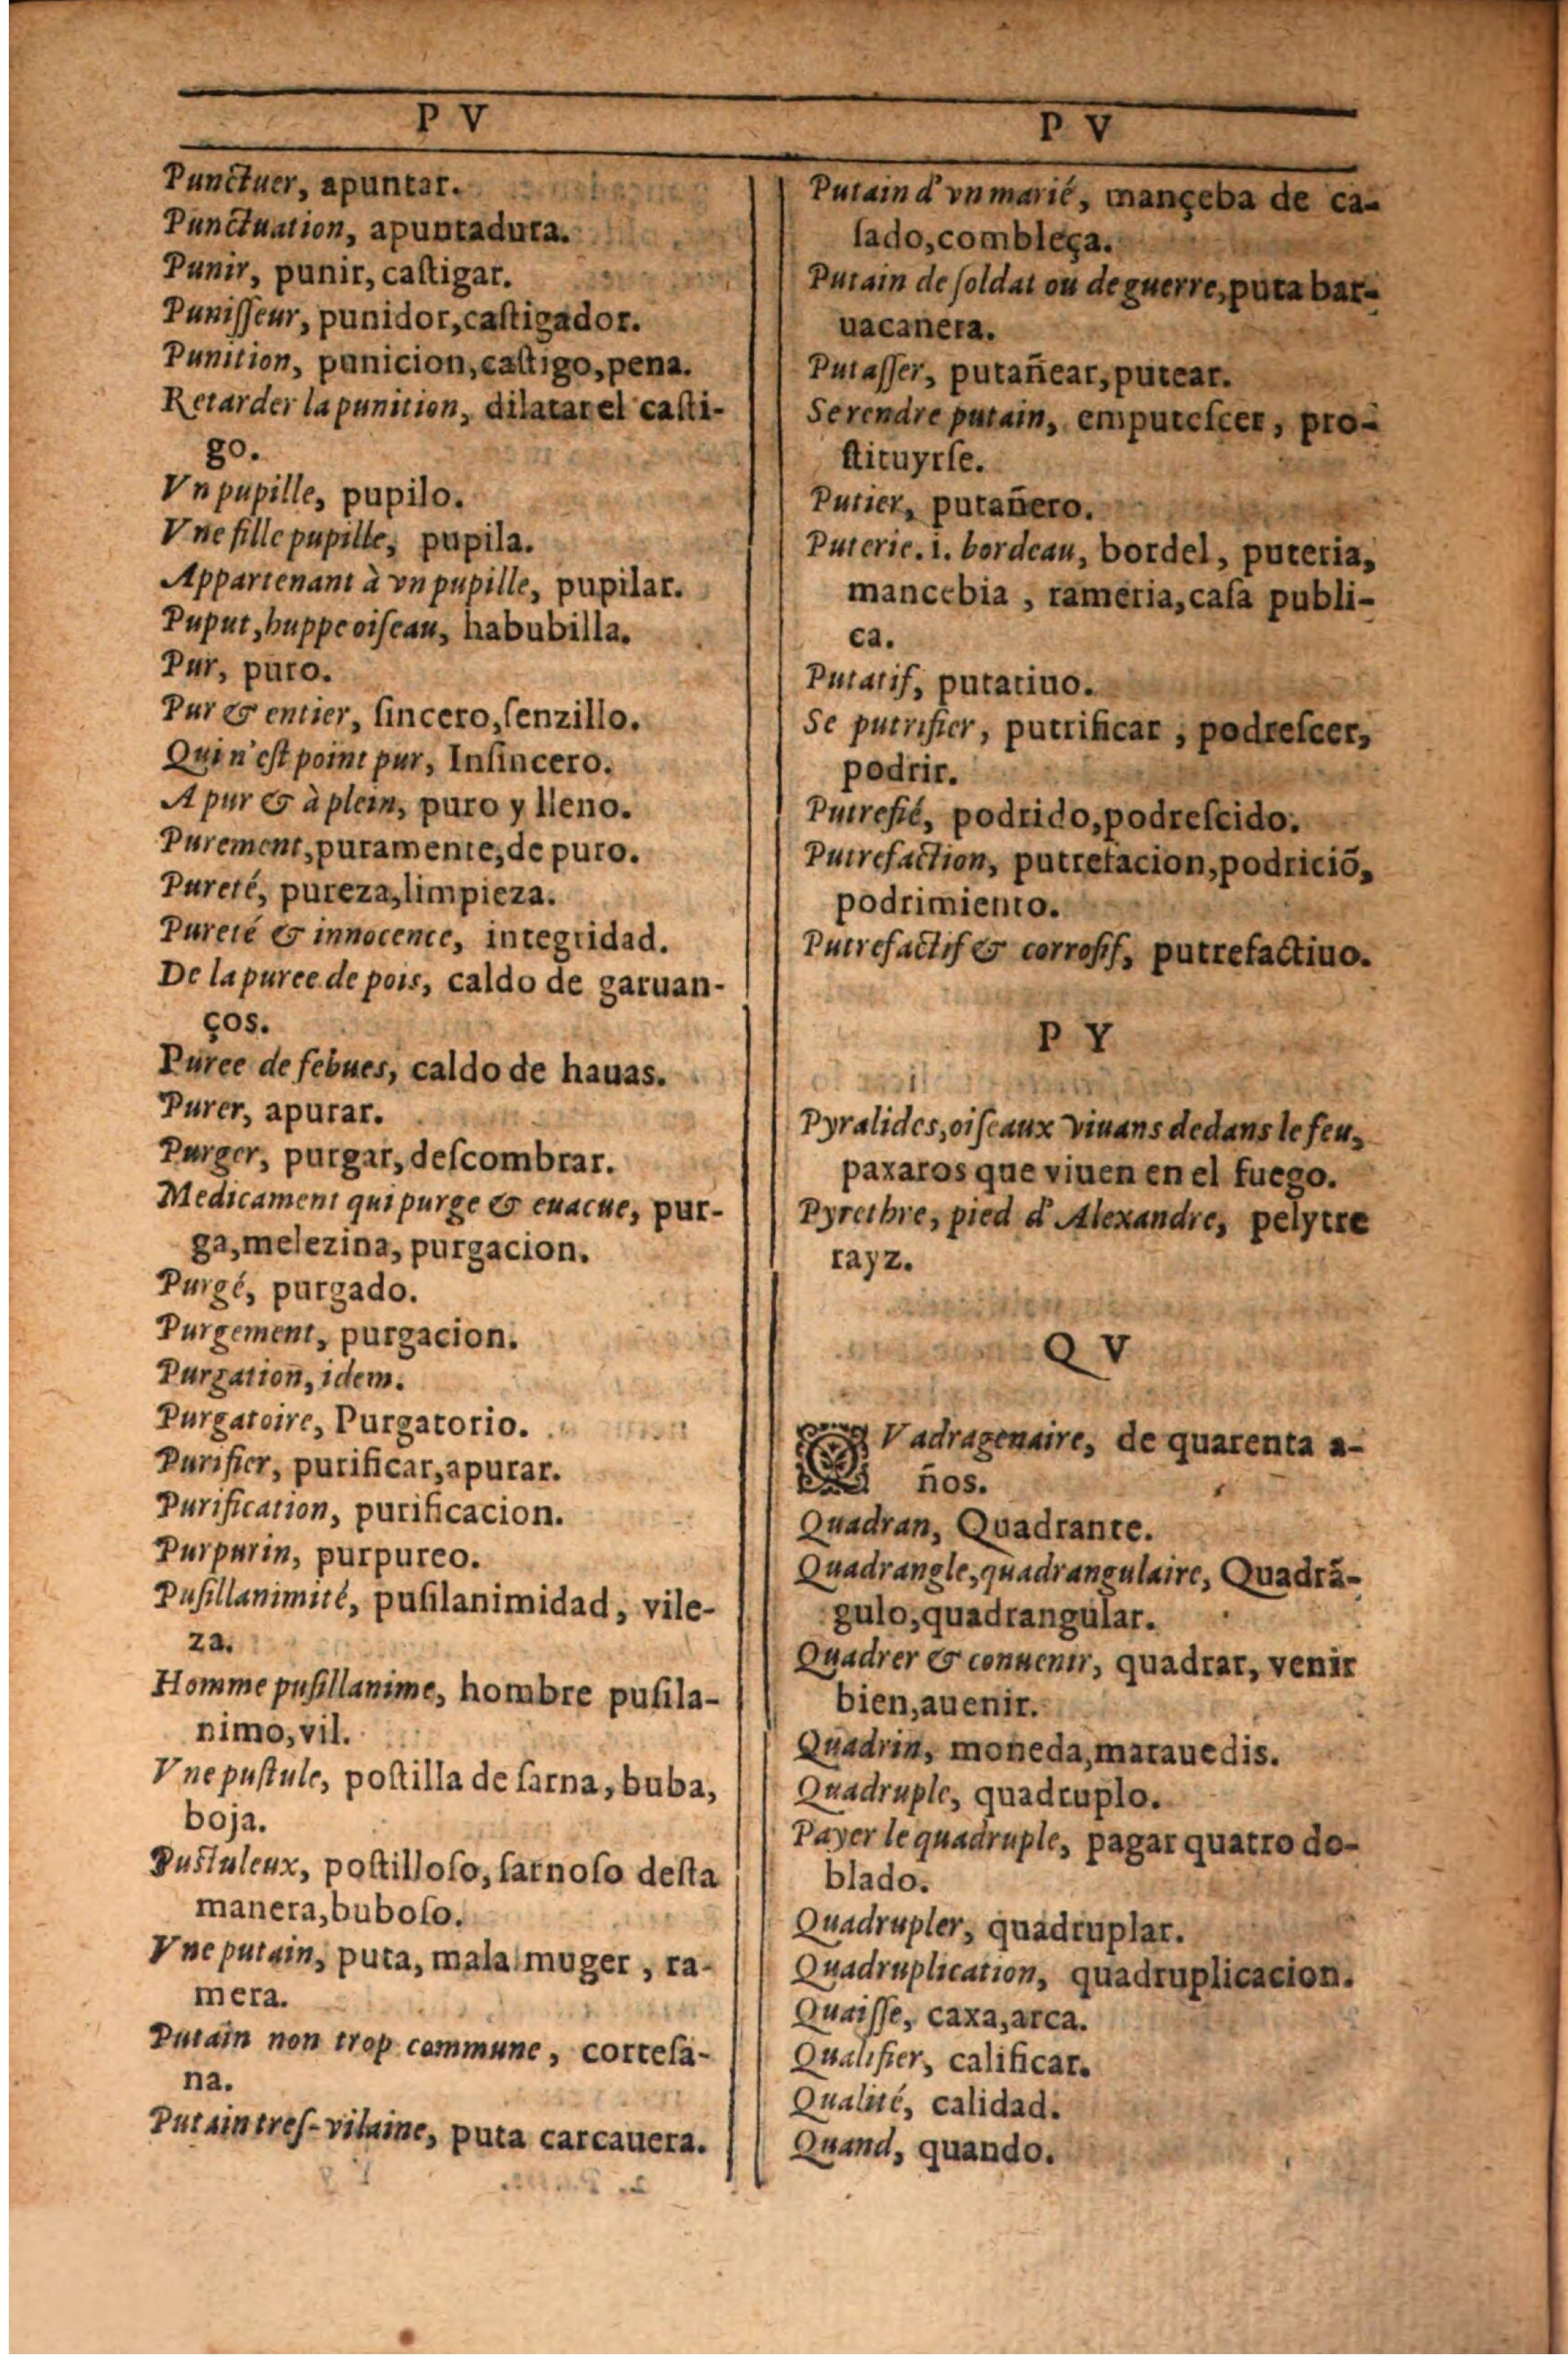 P V
Punctuer, apuntar.
Punctuation, apuntadura.
Punir, punir, caſtigar.
Puniſſeur, punidor,caſtigador.
Punition, punicion,caſtigo,pena.
Retarder la punition, dilatar el caſti-
go.
Vn pupille, pupilo.
Vne fille pupille, pupila.
Appartenant à vn pupille, pupilar.
Puput,huppe oiſeau, habubilla.
Pur, puro.
Pur & entier, ſincero,ſenzillo.
Qui n'eſt point pur, Inſincero.
A pur & à plein, puro y lleno.
Purement,puramente,de puro.
Pureté, pureza,limpieza.
Pureté & innocence, integridad.
De la puree de pois, caldo de garuan-
ços.
Puree de febues, caldo de hauas.
Purer, apurar.
Purger, purgar, deſcombrar.
Medicament qui purge & euacue, pur-
ga,melezina, purgacion.
Purgé, purgado.
Purgement, purgacion.
Purgation, idem.
Purgatoire, Purgatorio.
Purifier, purificar,apurar.
Purification, purificacion.
Purpurin, purpureo.
Puſillanimité, puſilanimidad, vile-
za.
Homme puſillanime, hombre puſila-
nimo,vil.
Vne puſtule, poſtilla de ſarna, buba,
boja.
Puſtuleux, poſtilloſo, ſarnoſo deſta
manera,buboſo.
Vne putain, puta, mala muger, ra-
mera.
Putain non trop commune, corteſa-
na.
Putain treſ-vilaine, puta carcauera.
P V
Putain d'vn marié, mançeba de ca-
ſado,combleça.
Putain de ſoldat ou de guerre,puta bar-
uacanera.
Putaſſer, putañear,putear.
Se rendre putain, emputeſcer, pro-
ſtituyrſe.
Putier, putañero.
Puterie. i. bordeau, bordel, puteria,
mancebia, rameria,caſa publi-
ca.
Putatif, putatiuo.
Se putrifier, putrificar, podreſcer,
podrir.
Putrefié, podrido,podreſcido.
Putrefaction, putrefacion,podriciõ,
podrimiento.
Putrefactif & corroſif, putrefactiuo.
P Y
Pyralides,oiſeaux viuans dedans le feu,
paxaros que viuen en el fuego.
Pyrethre, pied d'Alexandre, pelytre
rayz.
Q V
QVadragenaire, de quarenta a-
ños.
Quadran, Quadrante.
Quadrangle,quadrangulaire, Quadrã-
gulo,quadrangular.
Quadrer & conuenir, quadrar, venir
bien,auenir.
Quadrin, moneda,marauedis.
Quadruple, quadruplo.
Payer le quadruple, pagar quatro do-
blado.
Quadrupler, quadruplar.
Quadruplication, quadruplicacion.
Quaiſſe, caxa,arca.
Qualifier, calificar.
Qualité, calidad.
Quand, quando.